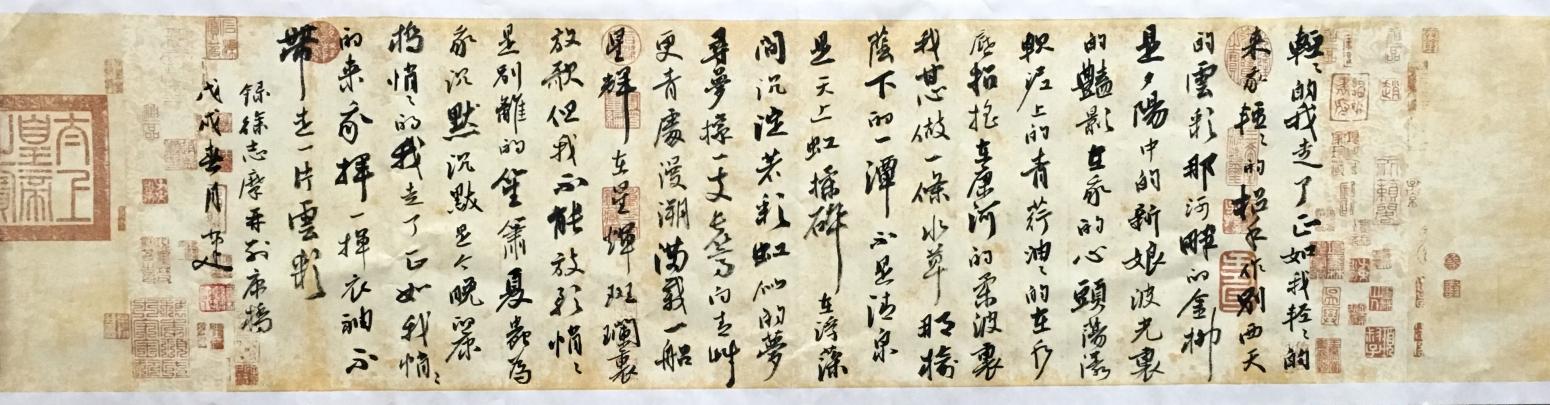 輕〻的我走了正如我輕〻的
来我輕〻的招手作别西天
的雲彩那河畔的金柳
是夕陽中的新娘波光裏
的豔影在我的心頭蕩漾
軟泥上的青荇油〻的在水
底招摇在康河的柔波裏
我甘心做一條水草那榆
蔭下的一潭不是清泉
是天上虹揉碎在浮藻
間沉淀着彩虹似的夢
尋夢撑一支長篙向青草
更青處漫溯满載一船
星輝在星輝斑斕裏
放歌但我不能放歌悄〻
是别離的笙簫夏蟲為
我沉默沉默是今晚康
橋悄〻的我走了正如我悄〻
的来我揮一揮衣袖不
帶走一片雲彩
録徐志摩再别康橋
戊戌春月
太上
皇帝